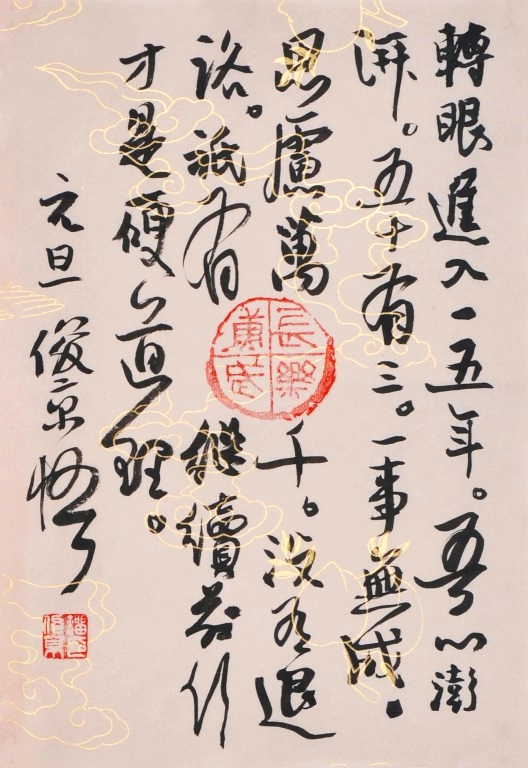 轉眼進入一五年。吾心澎
湃。五十有三。一事無成。
思慮萬千。沒有退
路。祇有繼續前行
才是硬道理。
元旦 俊京
長樂